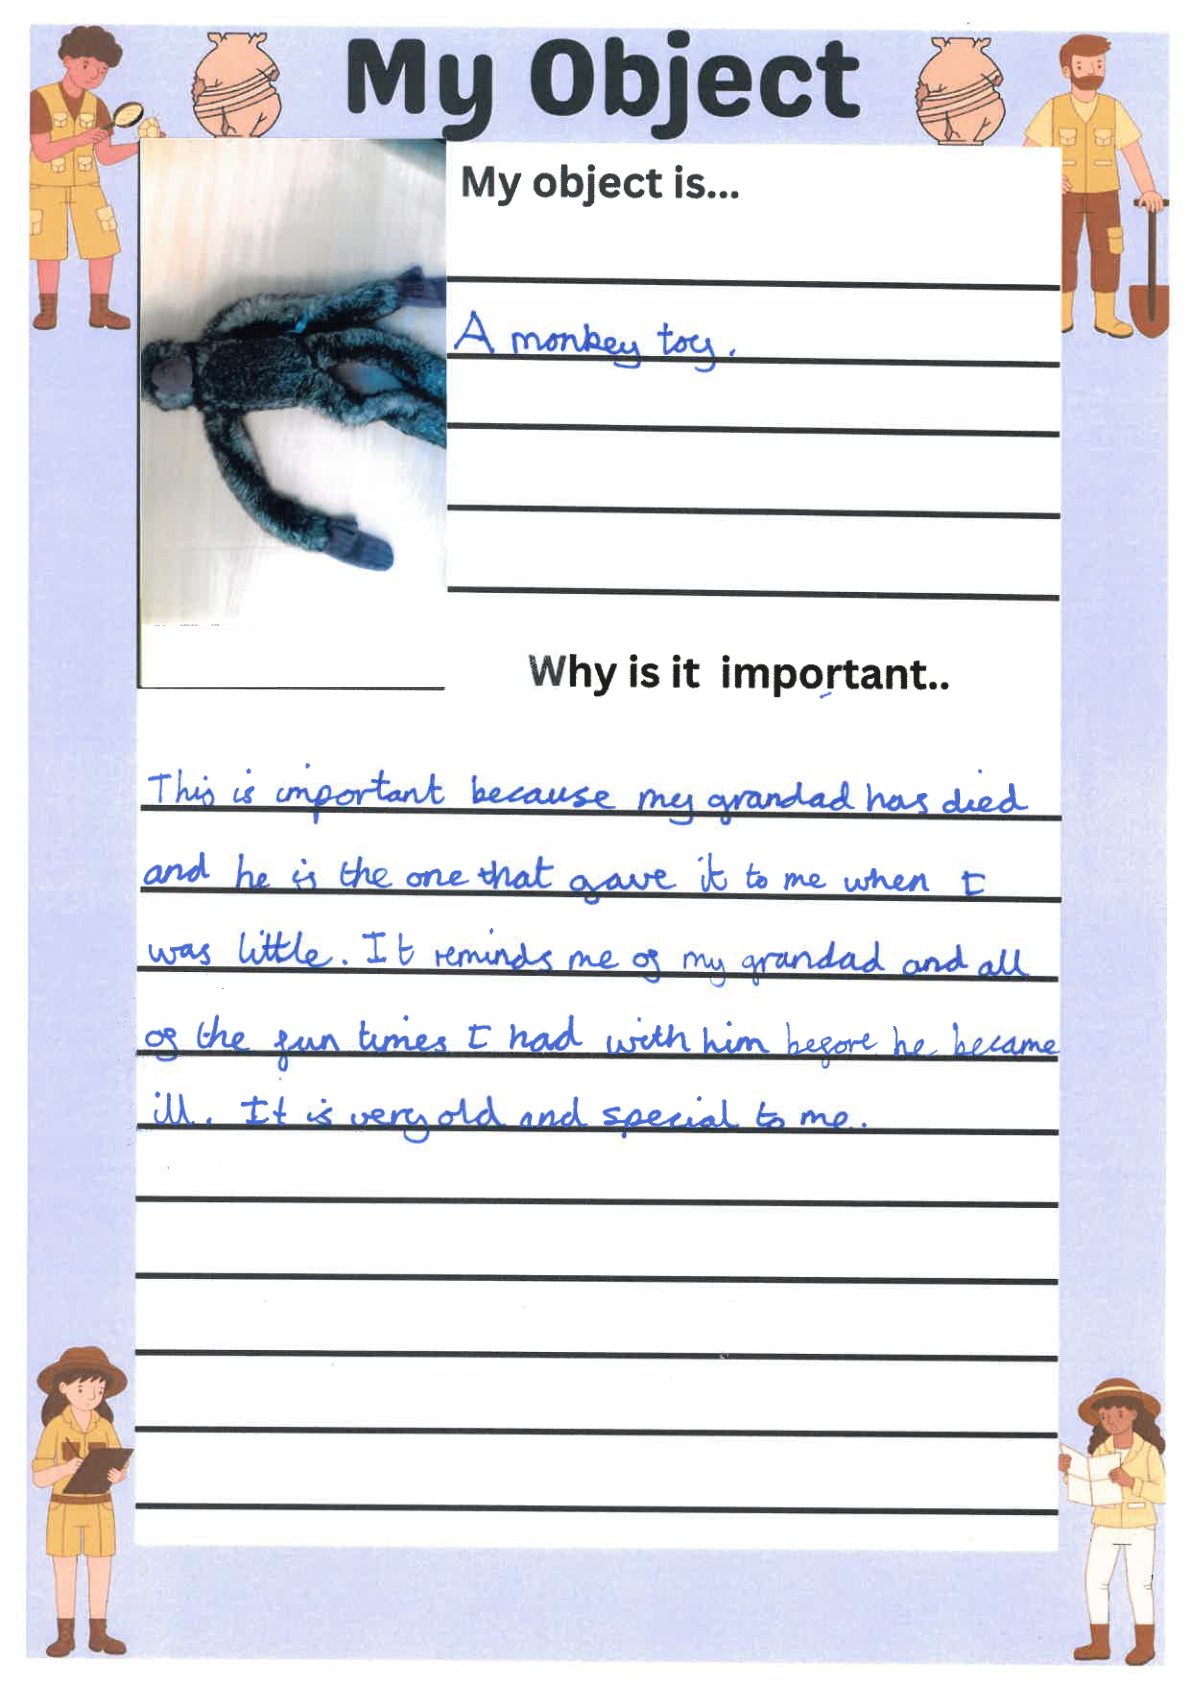 My Object
My object is...
A monkey toy.
Why is it important..
This is important because my grandad has died
and he is the one that gave it to me when I
was little. It reminds me of my grandad and all
of the fun times I had with him before he became
ill. It is very old and special to me.